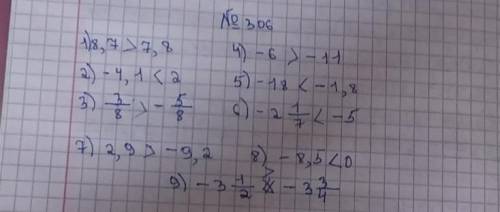 № 306
1) 8,7 > 7,8
4) -6 > -11
2) -4,1 < 2
5) -18 < -1,8
3) 3/8 > - 5/8
6) -2 1/7 < -5
7) 2,9 > -9,2
8) -8,5 < 0
9) -3 1/2 > -3 3/4